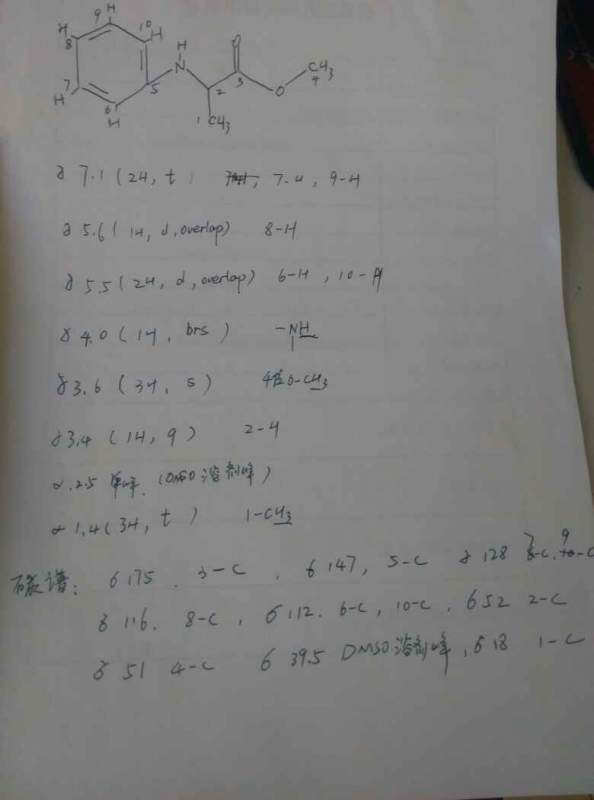 H
9
H 8
10 H
H
N
O
CH3
4
7
H
5
2
3
O
6
H
1 CH3
δ 7.1 (2H, t, 7-H, 9-H
δ 5.6 (1H, d, overlap) 8-H
δ 5.5 (2H, d, overlap) 6-H, 10-H
δ 4.0 (1H, brs) -NH
δ 3.6 (3H, s) 4位O-CH3
δ 3.4 (1H, q) 2-H
δ 2.5 单峰. (DMSO溶剂峰)
δ 1.4 (3H, t) 1-CH3
碳谱: δ 175. 3-C, δ 147, 5-C δ 128 7-C, 9-C
δ 116. 8-C, δ 112. 6-C, 10-C. δ 52 2-C
δ 51 4-C δ 39.5 DMSO溶剂峰, δ 18 1-C